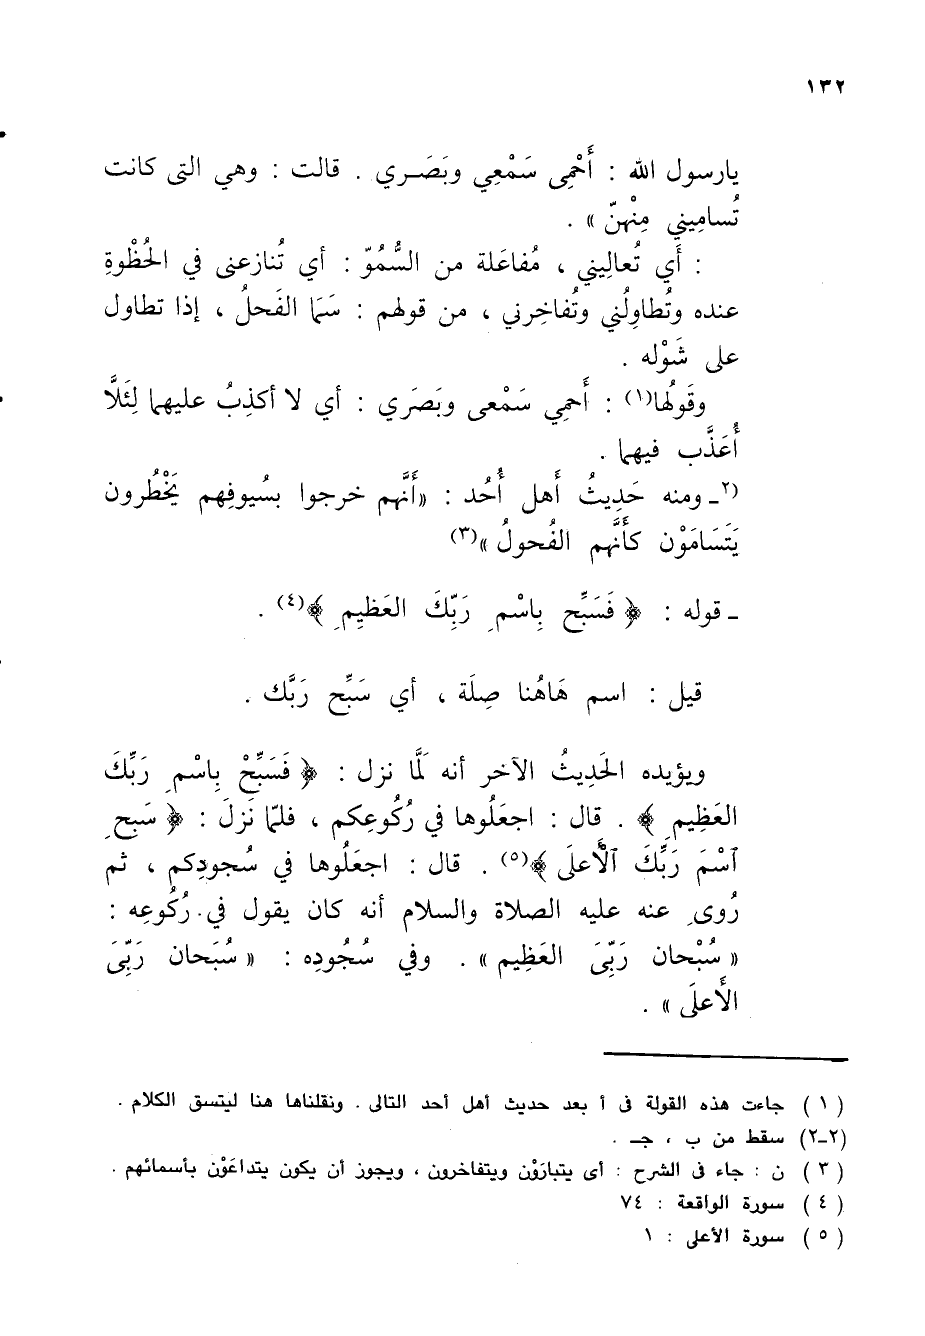 ١٣٢
يارسول الله : أَحْمِى سَمْعِي وبَصَـري . قالت : وهي التى كانت
تُسامِيني مِنْهنّ » .
: أَي تُعالِيني ، مُفاعَلة من السُّمُوّ : أي تُنازعنى في الحُظْوةِ
عنده وتُطاوِلُني وتُفاخِرني ، من قولهم : سَمَا الفَحلُ ، إذا تطاول
على شَوْله .
وقَولُها(١) : أَحمِي سَمْعى وبَصَري : أي لا أكذِبُ عليهما لِئَلَّا
أُعَذَّب فيهما .
(٢ـ ومنه حَدِيثُ أَهل أُحُد : «أَنَّهم خرجوا بسُيوفِهم يَخْطُرون
يَتَسَامَوْن كأَنَّهم الفُحولُ »(٣)
ـ قوله : ﴿ فَسَبِّح بِاسْمِ رَبِّكَ العَظِيمِ ﴾(٤) .
قيل : اسم هَاهُنا صِلَة ، أي سَبِّح رَبَّك .
ويؤيده الحَدِيثُ الآخر أنه لَمَّا نزل : ﴿ فَسَبِّحْ بِاسْمِ رَبِّكَ
العَظِيمِ ﴾ . قال : اجعَلُوها في رُكُوعِكم ، فلمّا نَزلَ : ﴿ سَبحِ
ٱسْمَ رَبِّكَ ٱلْأَعلَى ﴾(٥) . قال : اجعَلُوها في سُجودِكم ، ثم
رُوىِ عنه عليه الصلاة والسلام أنه كان يقول في رُكُوعِه :
« سُبْحان رَبِّىَ العَظِيم » . وفي سُجُودِه : « سُبَحان رَبِّىَ
الأَعلَى » .
( ١ ) جاءت هذه القولة فى أ بعد حديث أهل أحد التالى . ونقلناها هنا ليتسق الكلام .
(٢-٢) سقط من ب ، جـ .
( ٣ ) ن : جاء فى الشرح : أى يتبارَوْن ويتفاخرون ، ويجوز أن يكون يتداعَوْن بأسمائهم .
( ٤ ) سورة الواقعة : ٧٤
( ٥ ) سورة الأعلى : ١